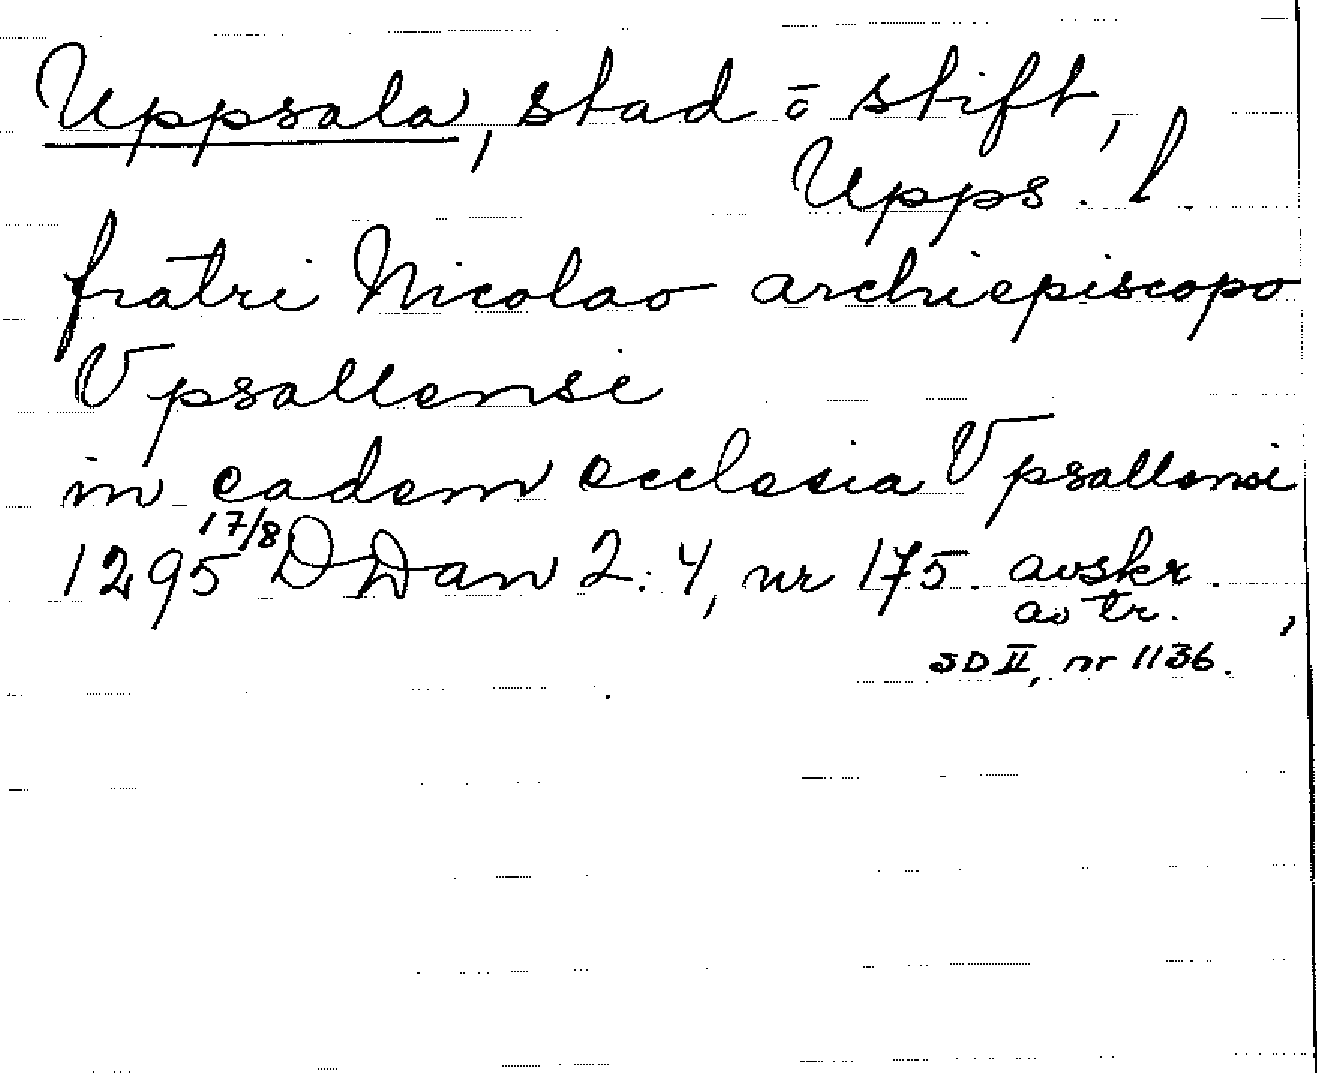 Uppsala, stad o stift,
Upps. l.
fratri Nicolao archiepiscopo
Vpsallensi
in eadem ecclesia Vpsallensi
1295 17/8 DDan 2:4, nr 175. avskr.
av tr.,
SD II, nr 1136.